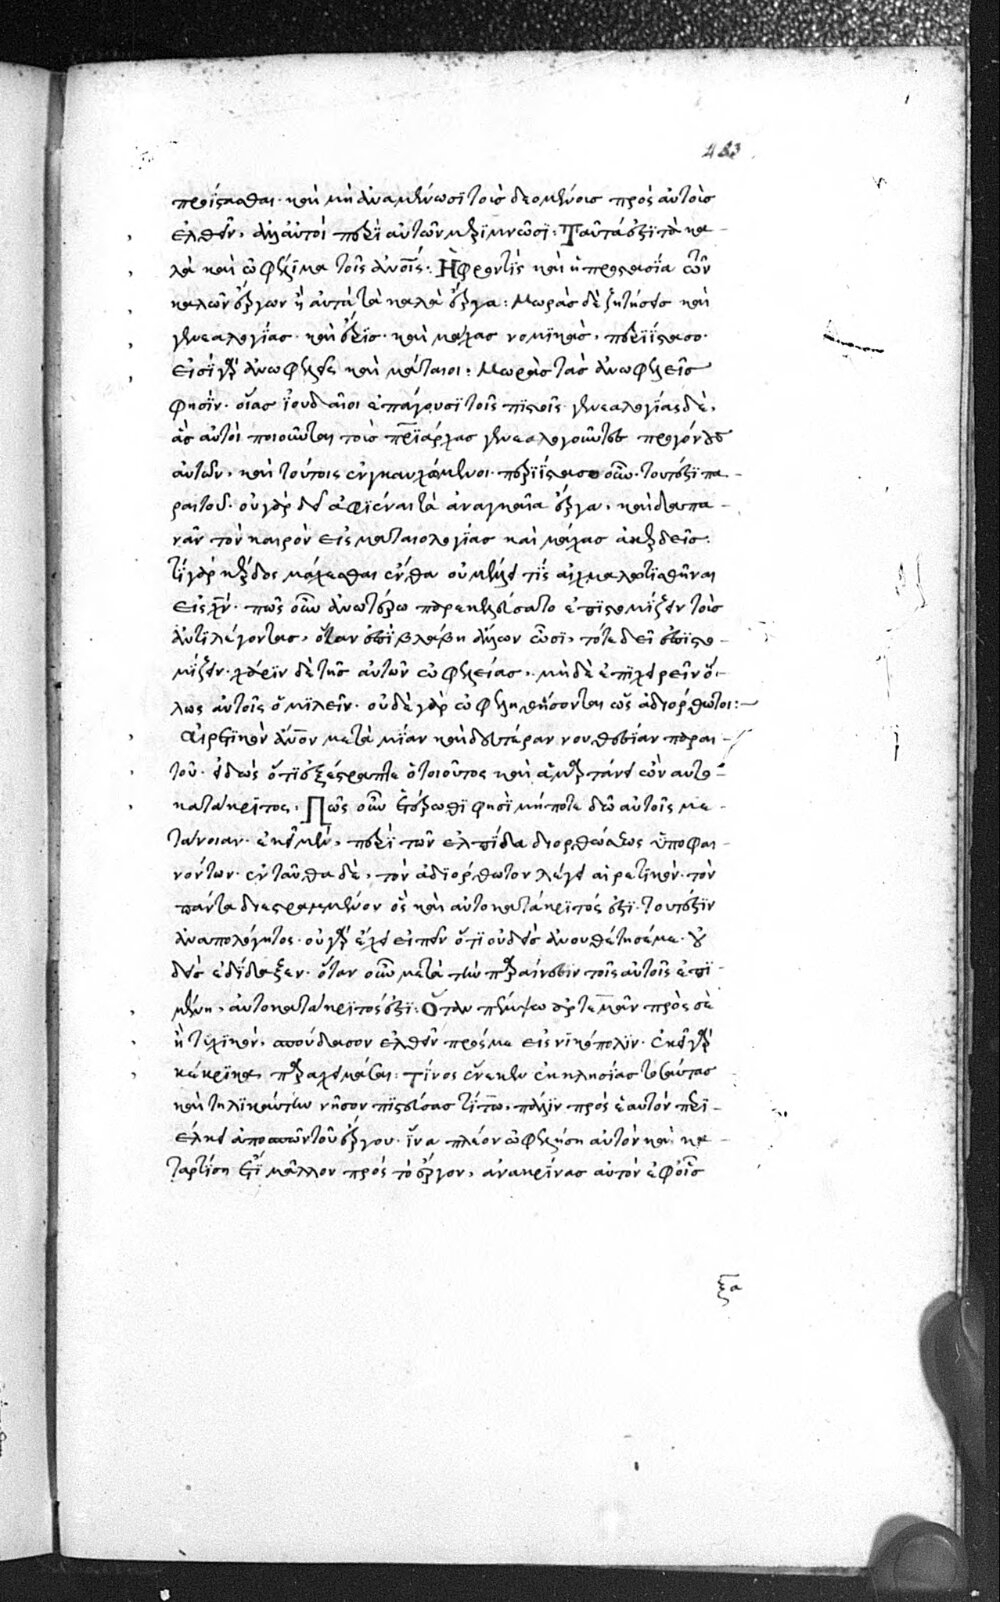 483
προΐστασθαι· καὶ μὴ ἀναμένωσι τοὺς δεομένους πρὸς αὐτοὺς
ἐλθεῖν, ἀλλ' αὐτοὶ περὶ αὐτῶν μεριμνῶσι: Ταῦτά ἐστι τὰ κα-
λὰ καὶ ὠφέλιμα τοῖς ἀνοις: Ἡ φροντὶς καὶ ἡ προστασία τῶν
καλῶν ἔργων ἢ αὐτὰ τὰ καλὰ ἔργα: Μωρὰς δὲ ζητήσεις καὶ
γενεαλογίας· καὶ ἔρεις· καὶ μάχας νομικὰς, περιΐστασο·
εἰσὶ γὰρ ἀνωφελεῖς καὶ μάταιοι: Μωρὰς τὰς ἀνωφελεῖς
φησίν· οἵας ἰουδαῖοι ἐπάγουσι τοῖς πιστοῖς γενεαλογίας δὲ,
ἃς αὐτοὶ ποιοῦνται τοὺς πριάρχας γενεαλογοῦντες προγόνους
αὐτῶν, καὶ τούτοις ἐγκαυχώμενοι· περιΐστασο οὖν· τουτέστι πα-
ραιτοῦ· οὐ γὰρ δεῖ ἀφιέναι τὰ ἀναγκαῖα ἔργα, καὶ δαπα-
νᾶν τὸν καιρὸν εἰς ματαιολογίας καὶ μάχας ἀκερδεῖς:
τί γὰρ κέρδος μάχεσθαι ἔνθα οὐ μέλλει τίς αἰχμαλωτισθῆναι
εἰς χν· πῶς οὖν ἀνωτέρω παρεκελεύσατο ἐπιστομίζειν τοὺς
ἀντιλέγοντας, ὅταν ἐπὶ βλάβη ἄλλων ὦσι, τότε δεῖ ἐπιστο-
μίζειν· χάριν δὲ τῆς αὐτῶν ὠφελείας, μὴ δὲ ἐπιχειρεῖν ὅ-
λως αὐτοῖς ὁμιλεῖν· οὐδὲ γὰρ ὠφεληθήσονται ὡς ἀδιόρθωτοι:-
Αἱρετικὸν ἄνον μετὰ μίαν καὶ δευτέραν νουθεσίαν παραι-
τοῦ· εἰδὼς ὅτι ἐξέστραπται ὁ τοιοῦτος καὶ ἁμαρτάνει ὢν αὐτο-
κατάκριτος, Πῶς οὖν ἑτέρωθι φησὶ μήποτε δῶ αὐτοῖς με-
τάνοιαν· ἐκεῖ μὲν, περὶ τῶν ἐλπίδα διορθώσεως ὑποφαι-
νόντων· ἐνταῦθα δὲ, τὸν ἀδιόρθωτον λέγει αἱρετικὸν· τὸν
πάντα διεστραμμένον ὃς καὶ αὐτοκατάκριτός ἐστι· τουτέστιν
ἀναπολόγητος· οὐ γὰρ ἔχει εἰπεῖν ὅτι οὐδεὶς ἀνουθέτησέ με· οὐ
δεὶς ἐδίδαξεν· ὅταν οὖν μετὰ τὴν παραίνεσιν τοῖς αὐτοῖς ἐπι-
μένη, αὐτοκατάκριτός ἐστι: Ὅταν πέμψω ἀρτεμᾶν πρὸς σὲ
ἢ τυχικὸν, σπούδασον ἐλθεῖν πρός με εἰς νικόπολιν· ἐκεῖ γὰρ
κέκρικα, παραχειμάσαι: τίνος ἕνεκεν ἐκκλησίας τοσαύτας
καὶ τηλικαύτην νῆσον πιστεύσας τίτω, πάλιν πρὸς ἑαυτὸν περι-
έλκει ἀποσπῶν τοῦ ἔργου· ἵνα πλέον ὠφελήση αὐτὸν καὶ κα-
ταρτίση ἔτι μᾶλλον πρὸς τὸ ἔργον, ἀνακρίνας αὐτὸν ἐφ' οἷς
ξα